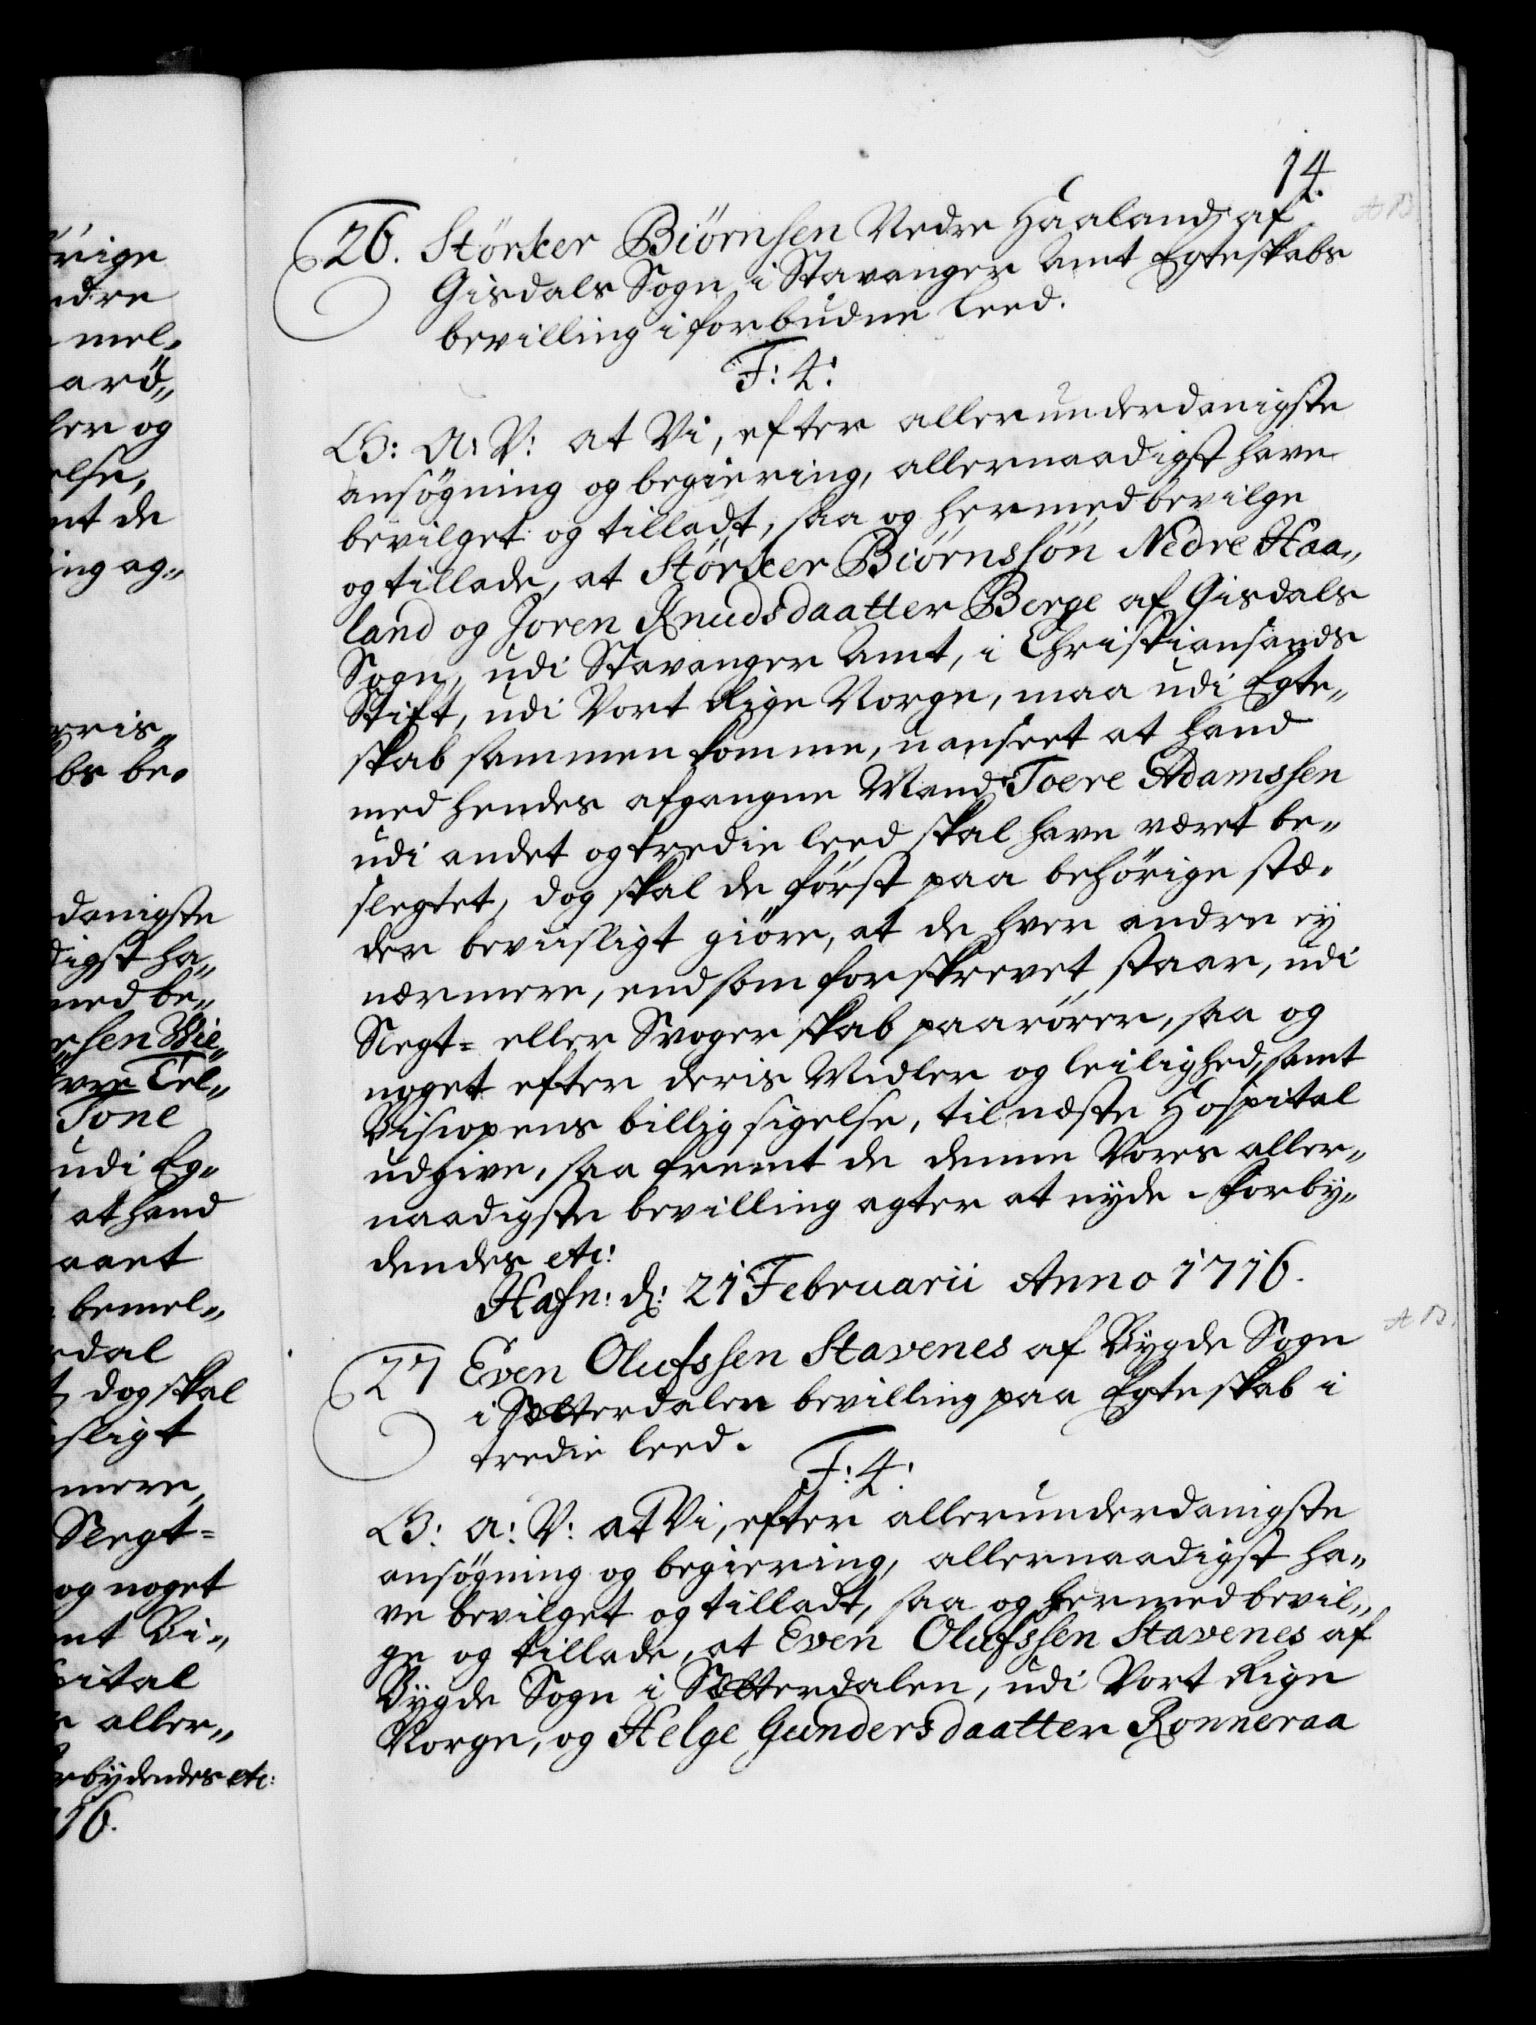 14.
26. Störker Biörnsen Nedre Haaland af
Gisdals Sogn i Stavanger Amt Egteskabs
bevilling i forbudne leed.
F: 4:
G: A: V: at Vi, efter allerunderdanigste
ansögning og begiering, allernaadigst have
bevilget og tilladt, saa og hermed bevilge
og tillade, at Störker Biörnssön Nedre Haa„
land og Joren Knudsdaatter Berge af Gisdals
Sogn, udi Stavanger Amt, i Christiansands
Stift, udi Vort Rige Norge, maa udi Egte„
skab sammen komme, uanseet at hand
med hendes afgangne Mand Toere Adamssen
udi andet og tredie leed skal have været be„
slegtet, dog skal de först paa behörige stæ„
der beviisligt giöre, at de hver andre ey
nærmere, end som forskrevet staar, udi
Slegt= eller Svogerskab paarörer, saa og
noget efter deris Midler og leilighed, samt
Biscopens billig sigelse, til næste Hospital
udgive, saa fremt de denne Vores aller„
naadigste bevilling agter at nyde. Forby„
dendes etc:
Hafn: d: 21 Februarii Anno 1716.
27 Even Olufssen Stavenes af Bygde Sogn
i Sætterdalen bevilling paa Egteskab i
tredie leed.
F: 4:
G: A: V: at Vi, efter allerunderdanigste
ansögning og begiering, allernaadigst ha„
ve bevilget og tilladt, saa og hermed bevil„
ge og tillade, at Even Olufssen Stavenes af
Bygde Sogn i Sætterdalen, udi Vort Rige
Norge, og Helge Gundersdaatter Ronneraa